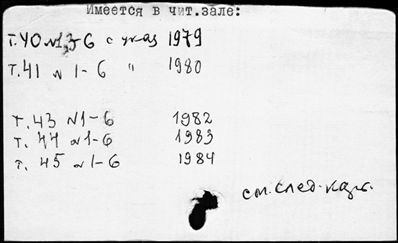 Имеется в чит.зале:
т.40 №1,3-6 с указ 1979
т.41 № 1-6 " 1980
т.43 №1-6 1982
т.44 №1-6 1983
т. 45 №1-6 1984
см.след.карт.